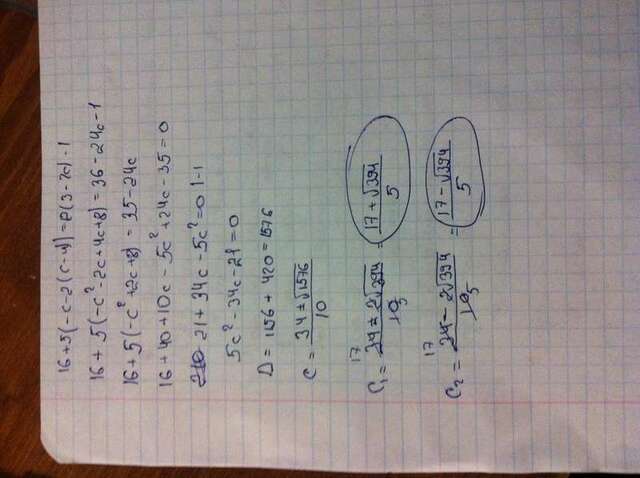 16+5(-c-2(c-4))=P(3-2c)-1
16+5(-c²-2c+4c+8)=36-24c-1
16+5(-c²+2c+8)=35-24c
16+40+10c-5c²+24c-35=0
21+34c-5c²=0 |-1
5c²-34c-21=0
D=1156+420=1576
c=(34±√1576)/10
c₁=(34±2√394)/10=(17+√394)/5
c₂=(34-2√394)/10=(17-√394)/5